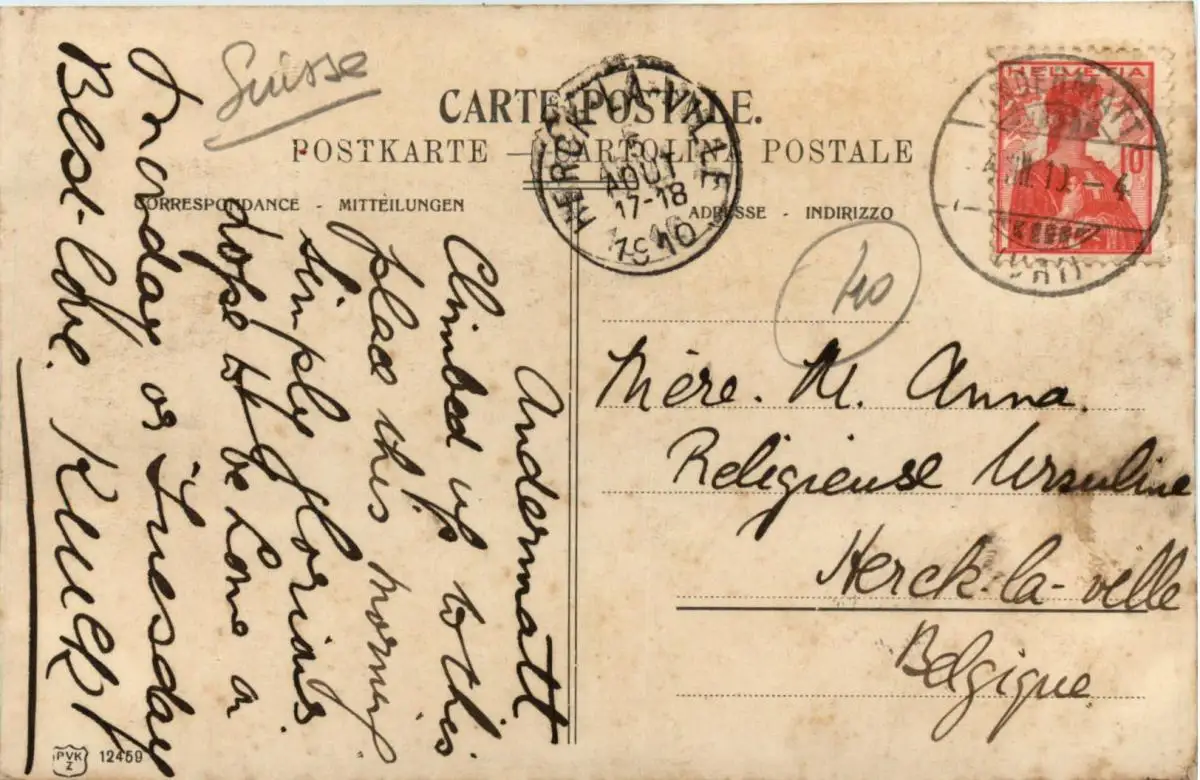 Suisse
CARTE POSTALE.
POSTKARTE — CARTOLINA POSTALE
CORRESPONDANCE - MITTEILUNGEN
ADRESSE - INDIRIZZO
HERCK-LA-VILLE
5
AOUT
17-18
1910
HELVETIA
10
ANDERMATT
(URI)
40
Andermatt
Climbed up to this
place this morning
simply glorious.
Hope to be home on
Monday or Tuesday
Best-love.
Mère. M. Anna.
Religieuse Ursuline
Herck-la-ville
Belgique
PVK
Z
12459